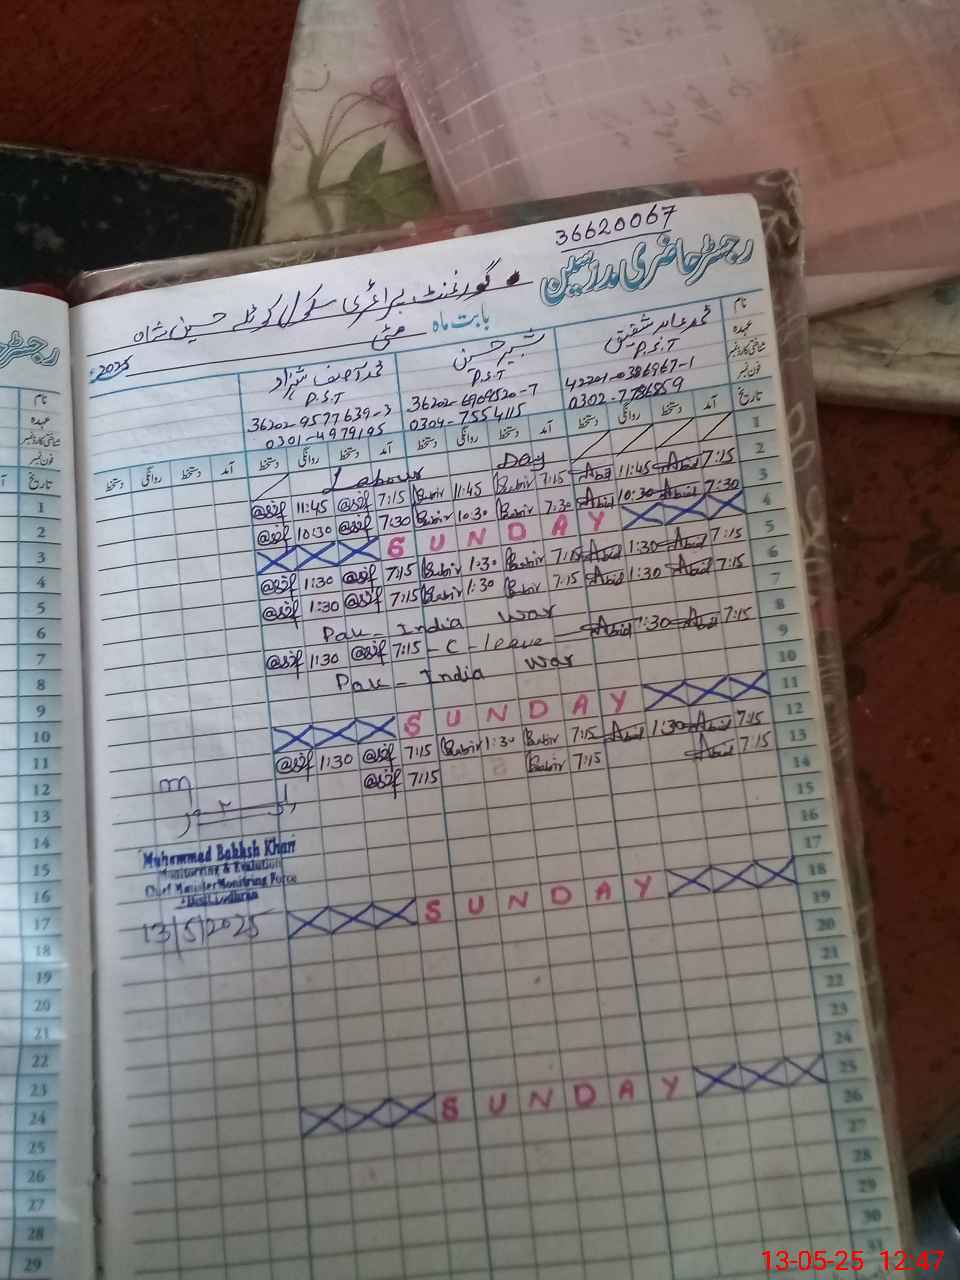 36620067
رجسٹر حاضری مدرسین
گورنمنٹ پرائمری سکول کوٹلہ حسین شاہ
بابت ماہ مئی 2025
نام محمد عابد شفیق شبیر حسین محمد آصف شہزاد
عہدہ P.S.T P.S.T P.S.T
شناختی کارڈ نمبر 42201-0386967-1 36202-6909520-7 36202-9577639-3
فون نمبر 0302-7786859 0304-7554115 0301-4979195
تاریخ آمد دستخط روانگی دستخط آمد دستخط روانگی دستخط آمد دستخط روانگی دستخط آمد دستخط روانگی دستخط
1 Labour Day
2 @sif 11:45 @sif 7:15 11:45 7:15 Abid 11:45 Abid 7:15
3 @sif 10:30 @sif 7:30 10:30 7:30 Abid 10:30 Abid 7:30
4 SUNDAY
5 @sif 1:30 @sif 7:15 1:30 7:15 Abid 1:30 Abid 7:15
6 @sif 1:30 @sif 7:15 1:30 7:15 Abid 1:30 Abid 7:15
7 Pak - India War
8 @sif 1:30 @sif 7:15 - C - leave - Abid 1:30 Abid 7:15
9 Pak - India War
10
11 SUNDAY
12 @sif 1:30 @sif 7:15 1:30 7:15 Abid 1:30 Abid 7:15
13 @sif 7:15 7:15 Abid 7:15
14
15
16
17
18 SUNDAY
19
20
21
22
23
24
25 SUNDAY
26
27
28
29
30
31
Muhammad Bakhsh Khan
Monitoring & Evalution
Chief Minister Monitring Force
Distt Lodhran
13/5/2025
رجسٹر
نام
عہدہ
شناختی کارڈ نمبر
فون نمبر
تاریخ
1
2
3
4
5
6
7
8
9
10
11
12
13
14
15
16
17
18
19
20
21
22
23
24
25
26
27
28
29
13-05-25 12:47